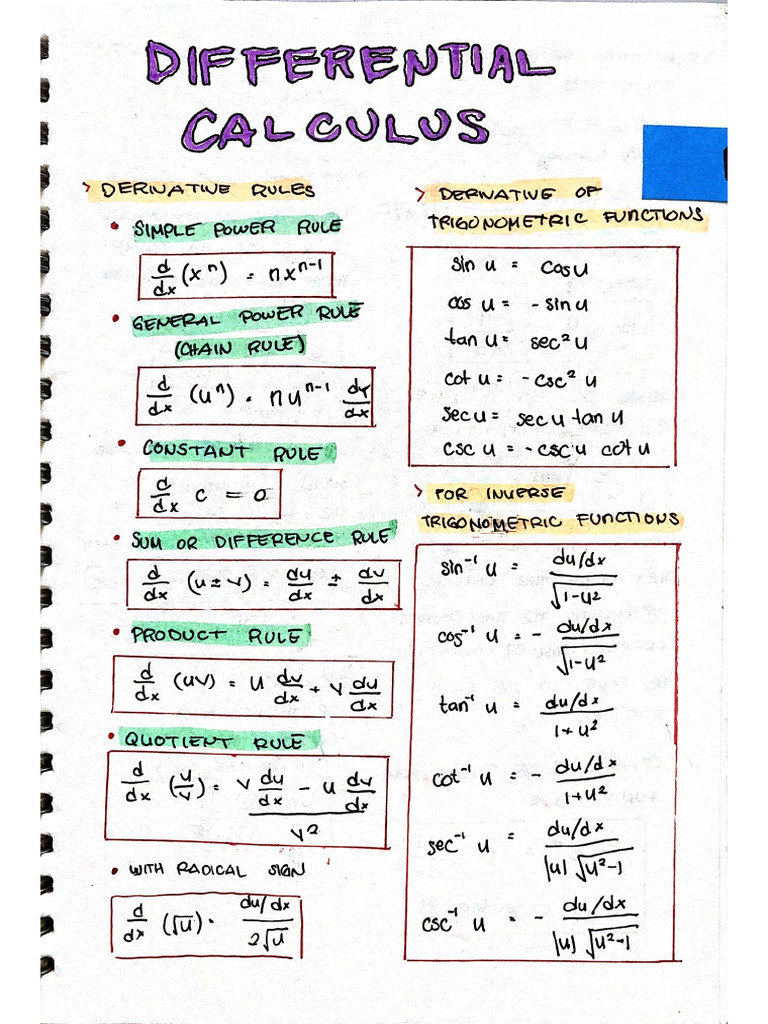 DIFFERENTIAL
CALCULUS
> DERIVATIVE RULES
• SIMPLE POWER RULE
d/dx (xⁿ) = nxⁿ⁻¹
• GENERAL POWER RULE
(CHAIN RULE)
d/dx (uⁿ) = nuⁿ⁻¹ dy/dx
• CONSTANT RULE
d/dx c = 0
• SUM OR DIFFERENCE RULE
d/dx (u ± v) = du/dx ± dv/dx
• PRODUCT RULE
d/dx (uv) = u dv/dx + v du/dx
• QUOTIENT RULE
d/dx (u/v) = (v du/dx - u dv/dx) / v²
• WITH RADICAL SIGN
d/dx (√u) = (du/dx) / 2√u
> DERIVATIVE OF
TRIGONOMETRIC FUNCTIONS
sin u = cos u
cos u = - sin u
tan u = sec² u
cot u = - csc² u
sec u = sec u tan u
csc u = - csc u cot u
> FOR INVERSE
TRIGONOMETRIC FUNCTIONS
sin⁻¹ u = (du/dx) / √(1-u²)
cos⁻¹ u = - (du/dx) / √(1-u²)
tan⁻¹ u = (du/dx) / (1+u²)
cot⁻¹ u = - (du/dx) / (1+u²)
sec⁻¹ u = (du/dx) / (|u| √(u²-1))
csc⁻¹ u = - (du/dx) / (|u| √(u²-1))